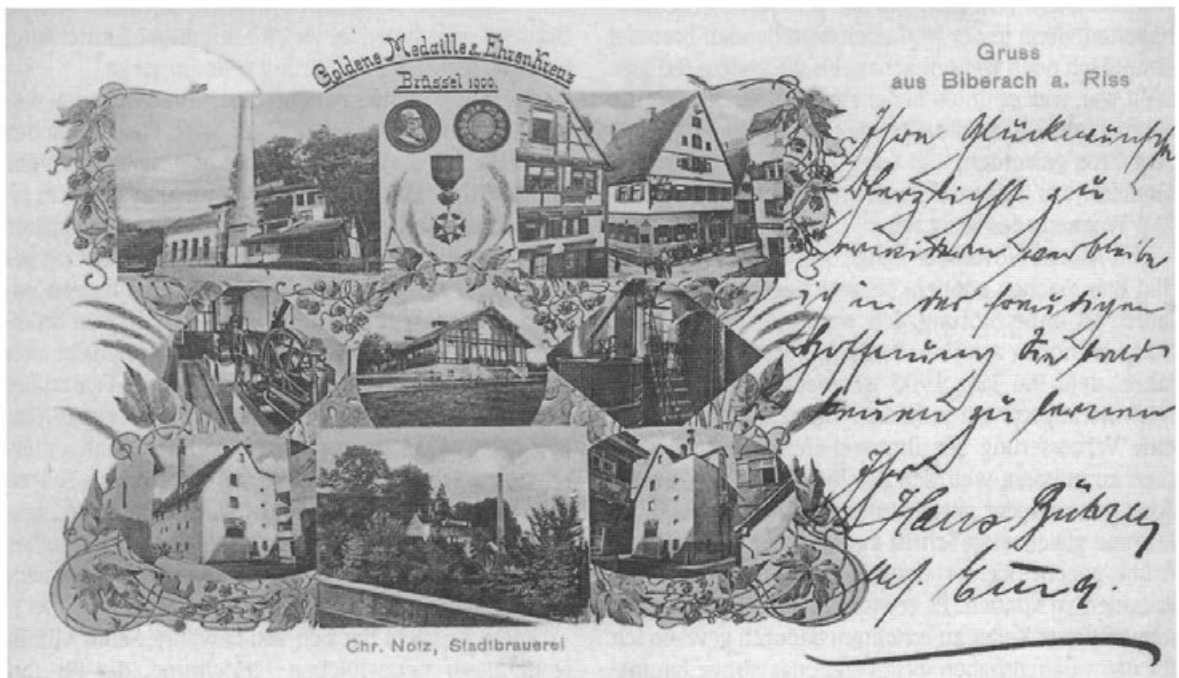 Goldene Medaille & Ehrenkreuz
Brüssel 1900.
Gruss
aus Biberach a. Riss
Ihre Glückwünsche
herzlichst zu
erwidern verbleibe
ich in der freudigen
Hoffnung Sie bald
kennen zu lernen
Ihr
Hans
Chr. Notz, Stadtbrauerei